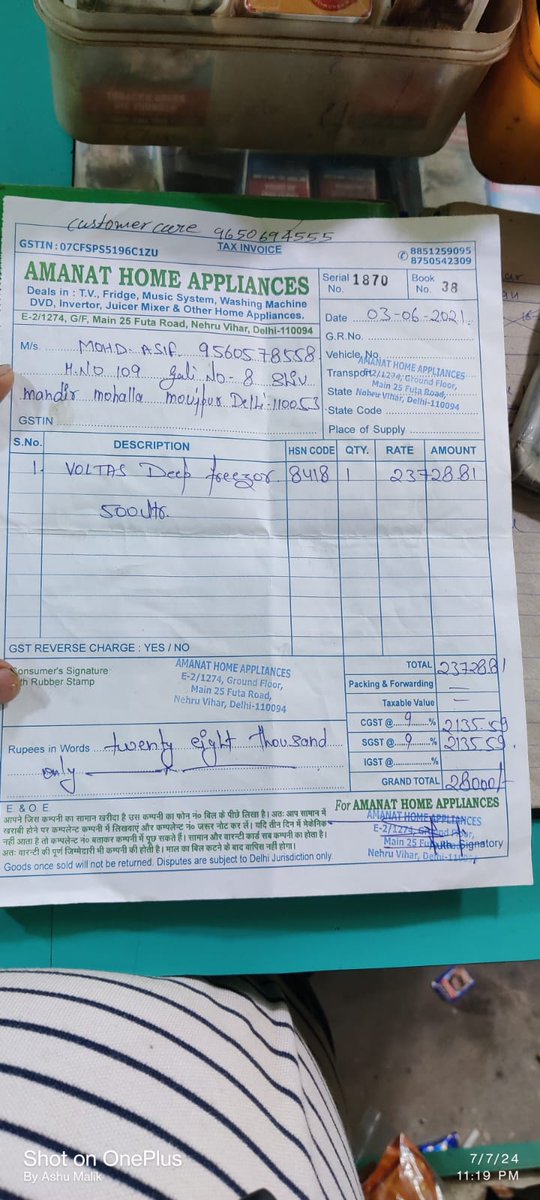 customer care 9650694555
GSTIN : 07CFSPS5196C1ZU
TAX INVOICE
✆ 8851259095
8750542309
AMANAT HOME APPLIANCES
Deals in : T.V., Fridge, Music System, Washing Machine
DVD, Invertor, Juicer Mixer & Other Home Appliances.
E-2/1274, G/F, Main 25 Futa Road, Nehru Vihar, Delhi-110094
Serial No. 1870
Book No. 38
Date 03-06-2021
G.R.No.
Vehicle No.
Transport
State
State Code
Place of Supply
AMANAT HOME APPLIANCES
E-2/1274, Ground Floor,
Main 25 Futa Road,
Nehru Vihar, Delhi-110094
M/s. MOHD. ASIF 9560578558
H.NO 109 Gali No-8 Shiv
mandir mohalla moujpur Delhi-110053
GSTIN
S.No. DESCRIPTION HSN CODE QTY. RATE AMOUNT
1. VOLTAS Deep freezor 8418 1 23728.81
500 Ltr.
GST REVERSE CHARGE : YES / NO
Consumer's Signature
With Rubber Stamp
AMANAT HOME APPLIANCES
E-2/1274, Ground Floor,
Main 25 Futa Road,
Nehru Vihar, Delhi-110094
TOTAL 23728.81
Packing & Forwarding =
Taxable Value =
CGST @ 9 % 2135.59
SGST @ 9 % 2135.59
IGST @ %
GRAND TOTAL 28000/-
Rupees in Words twenty eight thousand
only
E & O E
आपने जिस कम्पनी का सामान खरीदा है उस कम्पनी का फोन नं० बिल के पीछे लिखा है। अतः आप सामान में
खराबी होने पर कम्पलेन्ट कम्पनी में लिखवाएं और कम्पलेन्ट नं० जरूर नोट कर लें। यदि तीन दिन में मैकेनिक
नहीं आता है तो कम्पलेन्ट नं० बताकर कम्पनी में पूछ सकते हैं। सामान और वारन्टी कार्ड सब कम्पनी का होता है।
अतः वारन्टी की पूर्ण जिम्मेदारी भी कम्पनी की होती है। माल का बिल कटने के बाद वापिस नही होगा।
Goods once sold will not be returned. Disputes are subject to Delhi Jurisdiction only.
For AMANAT HOME APPLIANCES
AMANAT HOME APPLIANCES
E-2/1274, Ground Floor,
Main 25 Futa Road,
Nehru Vihar, Delhi-110094
Auth. Signatory
Shot on OnePlus
By Ashu Malik
7/7/24
11:19 PM